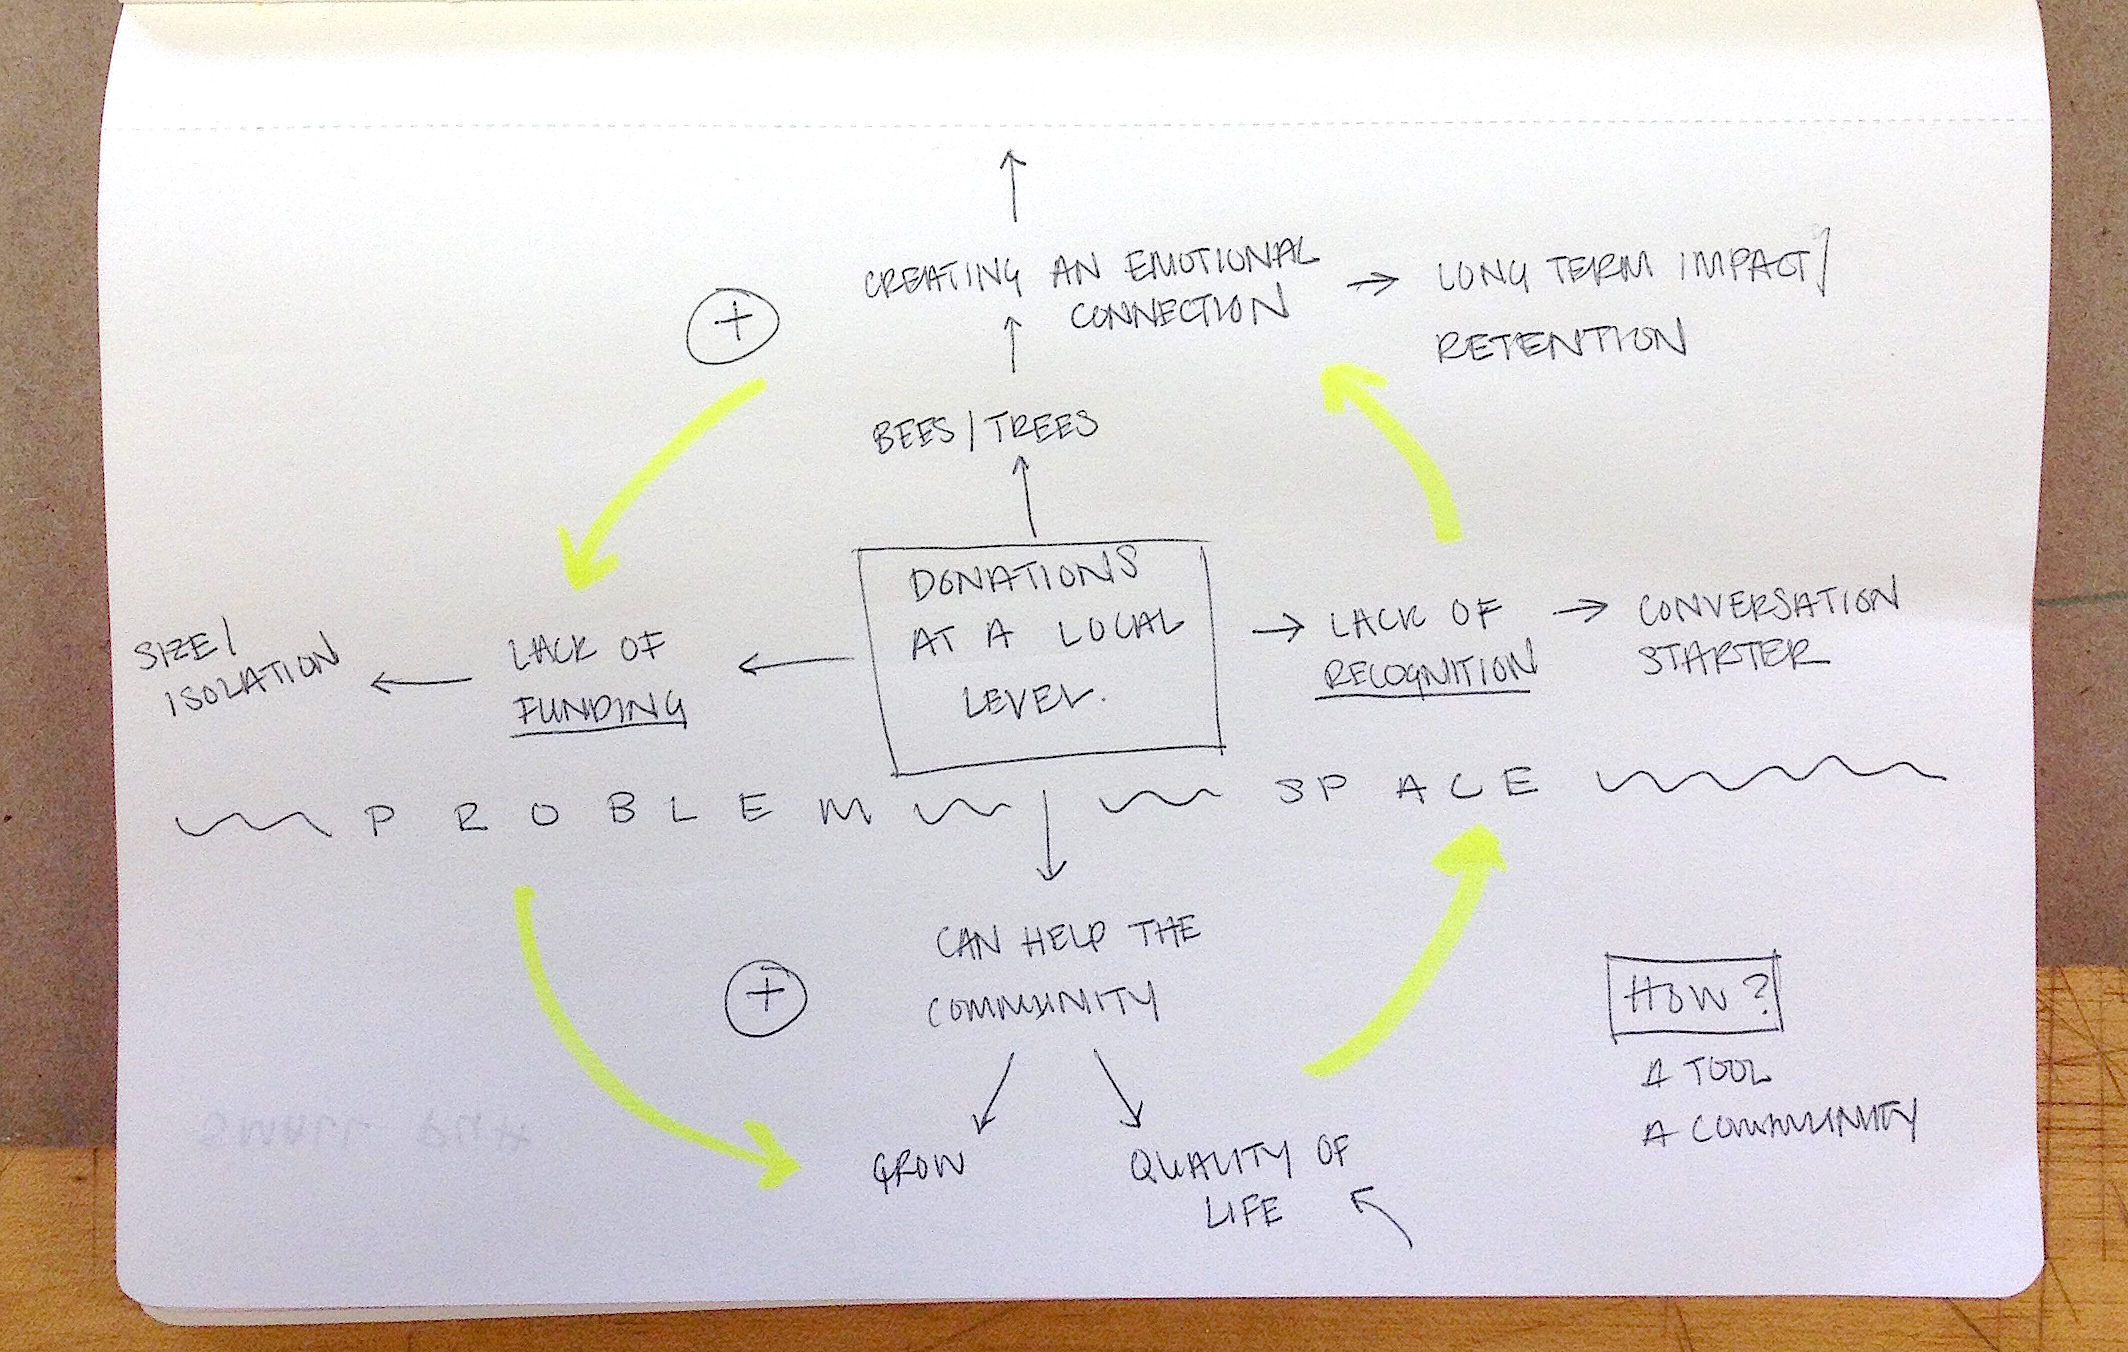 CREATING AN EMOTIONAL
CONNECTION
LONG TERM IMPACT/
RETENTION
BEES/TREES
DONATIONS
AT A LOCAL
LEVEL.
SIZE/
ISOLATION
LACK OF
FUNDING
LACK OF
RECOGNITION
CONVERSATION
STARTER
PROBLEM SPACE
CAN HELP THE
COMMUNITY
GROW
QUALITY OF
LIFE
HOW?
A TOOL
A COMMUNITY